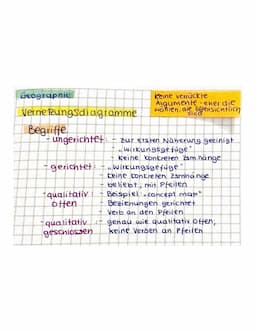 Geographie
Keine verrückte
Argumente - eher die
nehmen, die offensichtlich
sind
Vernetzungsdiagramme
Begriffe
- ungerichtet: - zur ersten Näherung geeinigt
- "Wirkungsgefüge"
- keine konkreten Zsmhänge
- gerichtet: - "Wirkungsgefüge"
- keine konkreten Zsmhänge
- beliebt, mit Pfeilen
- qualitativ : - Beispiel: "concept map"
offen - Beziehungen gerichtet
- Verb an den Pfeilen
- qualitativ : - genau wie qualitativ offen,
geschlossen keine Verben an Pfeilen